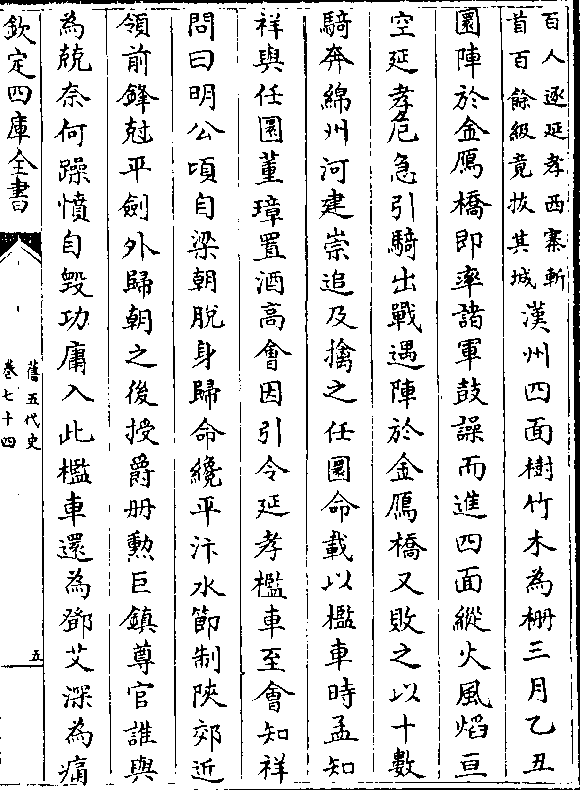 百人逐延孝西寨斬
首百餘級竟拔其城
漢州四面樹竹木為柵三月乙丑
圜陣於金鴈橋即率諸軍鼓譟而進四面縱火風焰亘
空延孝危急引騎出戰遇陣於金鴈橋又敗之以十數
騎奔綿州河建崇追及擒之任圜命載以檻車時孟知
祥與任圜董璋置酒髙會因引令延孝檻車至會知祥
問曰明公頃自梁朝脫身歸命纔平汴水節制陜郊近
領前鋒尅平劍外歸朝之後授爵册勲巨鎮尊官誰與
為兢奈何躁憤自毀功庸入此檻車還為鄧艾深為痛
欽定四庫全書
舊五代史
卷七十四
五